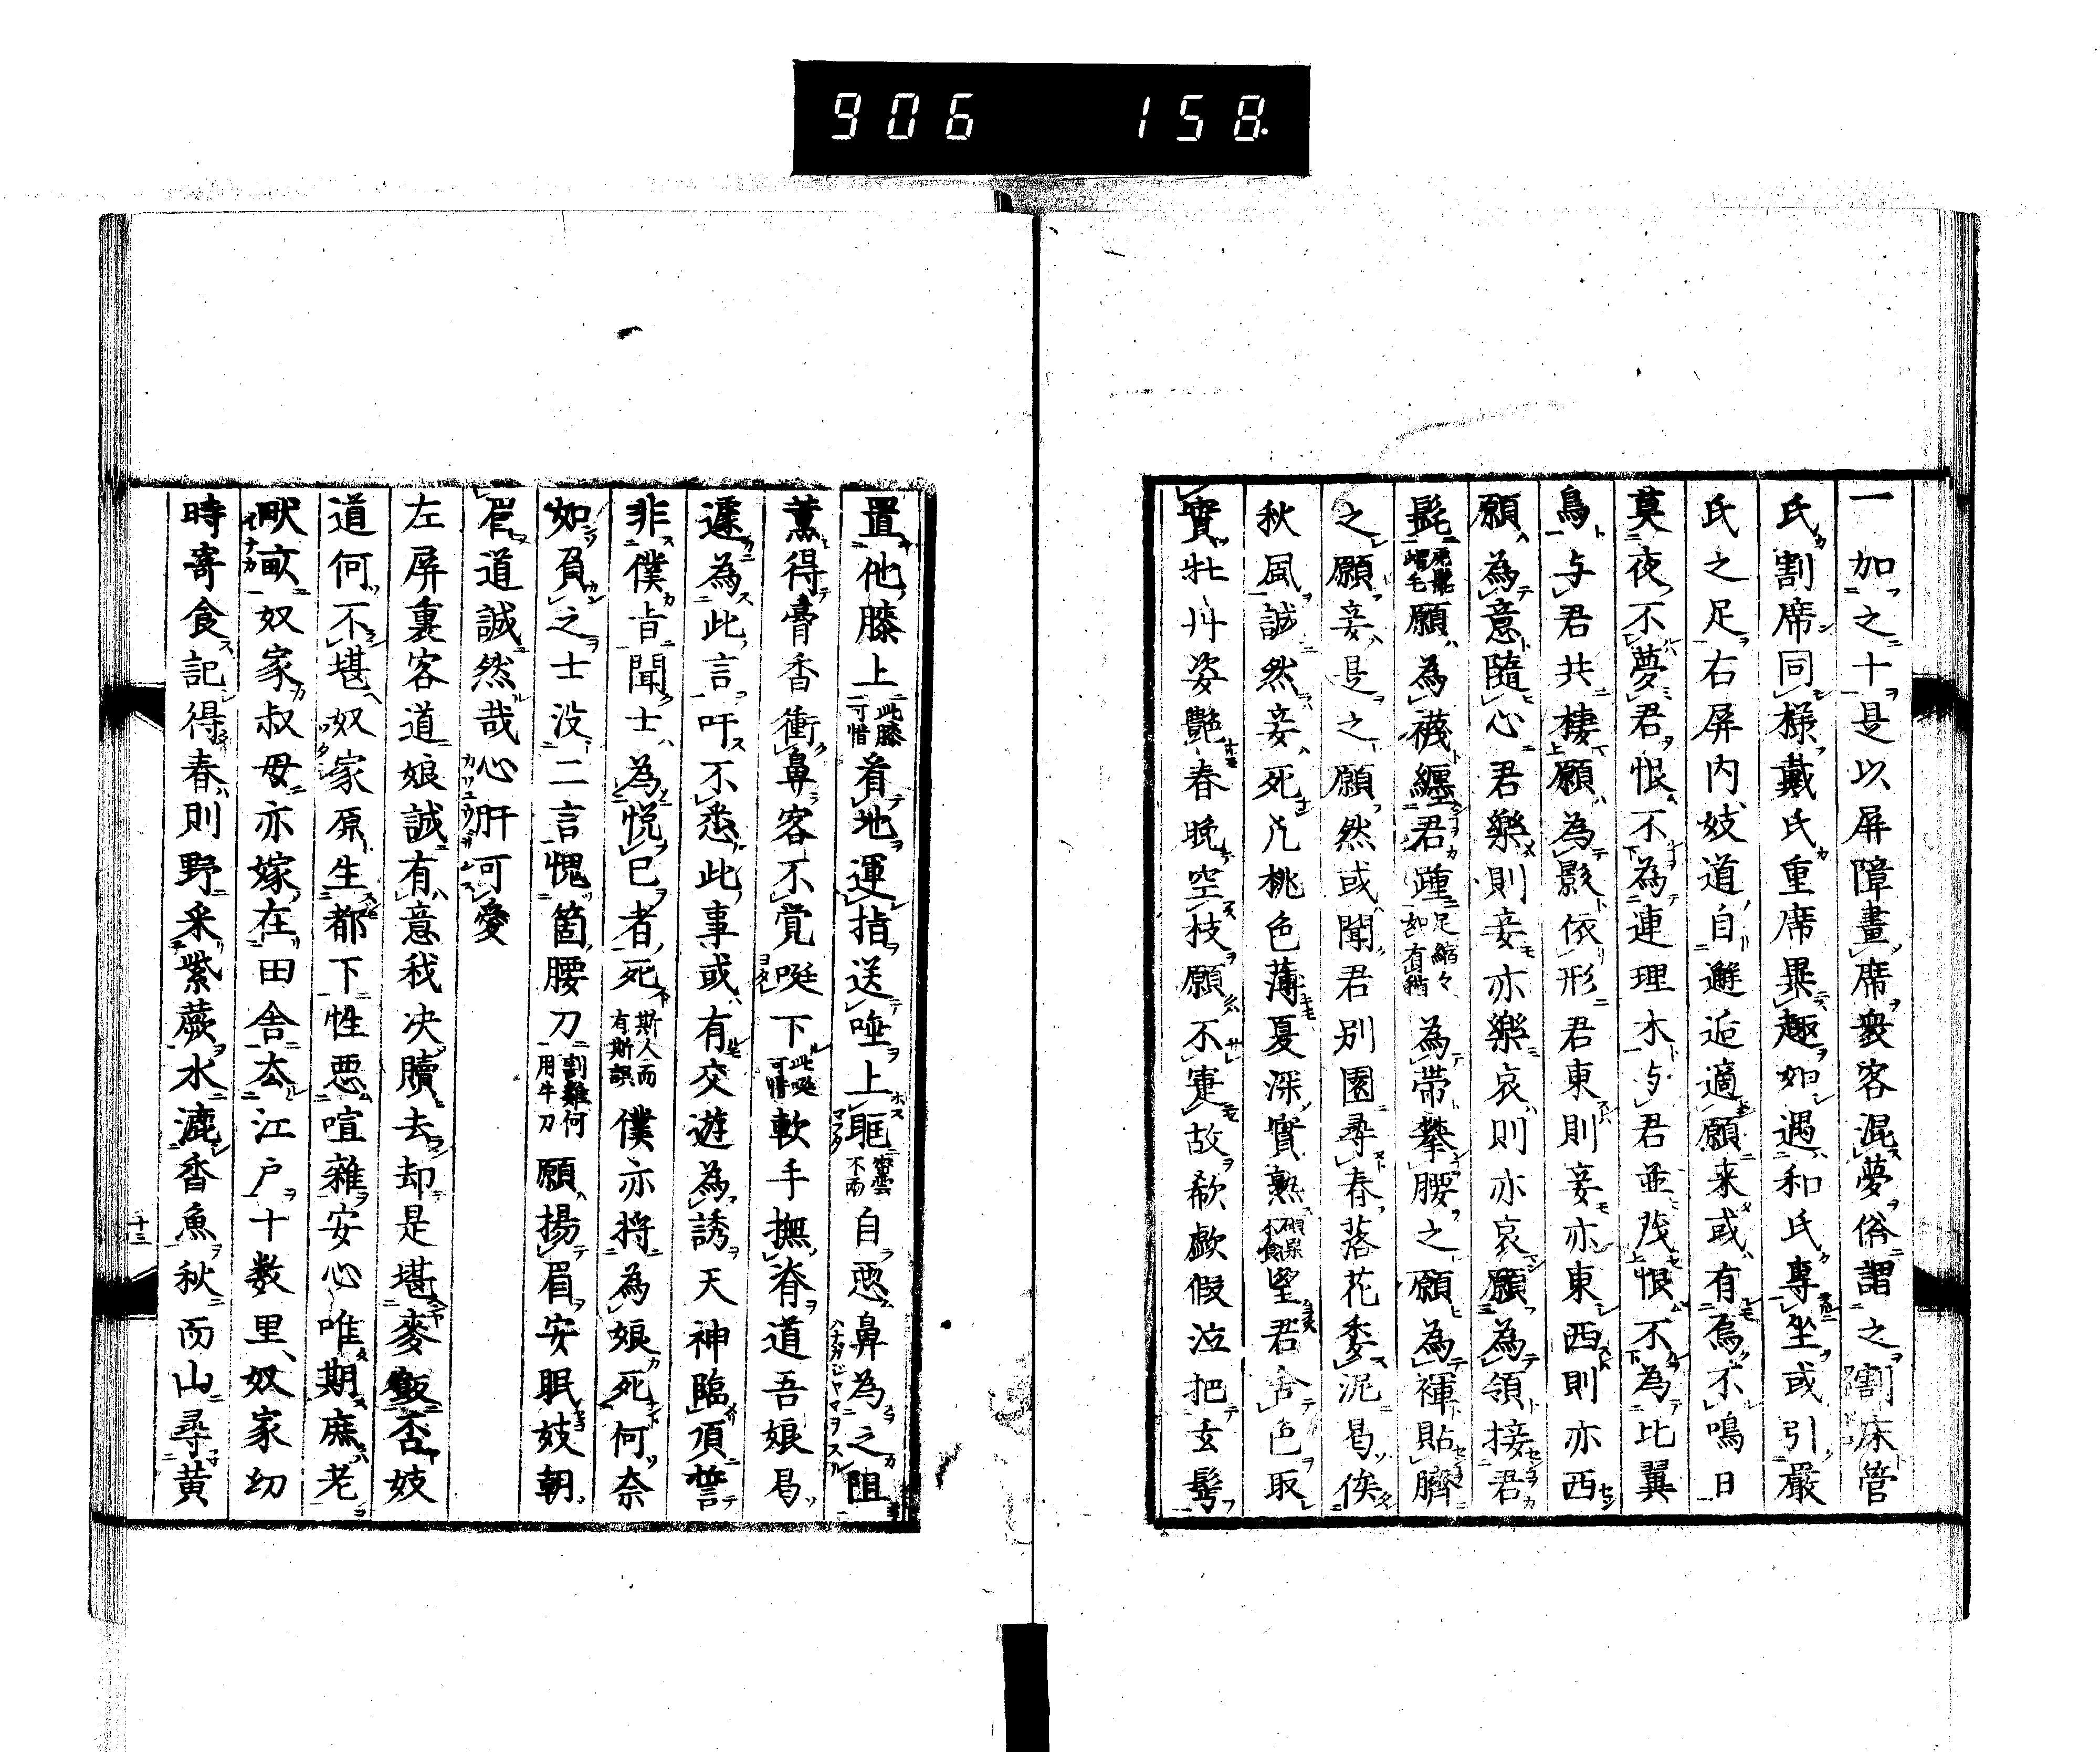 906 158
一加之十是以屏障畫席衆客混夢俗謂之割床管
氏割席同樣戴氏重席畢趣如遇和氏專坐或引嚴
氏之足右屏内妓道自邂逅適願来或有焉不鳴日
莫夜不夢君恨不為連理木与君並茂恨不為比翼
鳥与君共棲願為影依形君東則妾亦東西則亦西
願為意隨心君樂則妾亦樂哀則亦哀願為領接君
髭願為襪纏君踵足縮々如有循為帶攀腰之願為褌貼臍
之願妾是之願然或聞君別園尋春落花委泥曷俟
秋風誠然妾死凡桃色薄夏深實熟堅君舍色取
實牡丱姿艶春晩空枝願不寔故欷歔假泣把玄髩
置他膝上此膝可惜肴地運指送唾上眶密雲不雨自悪鼻為之阻
薫得膏香衝鼻客不覚唌下此唌可惜軟手撫脊道吾娘曷
遽為此言吁不悉此事或有交遊為誘天神臨頂誓
非僕旨聞士為悦己者死斯人而有斯誤僕亦将為娘死何奈
如負之士没二言愧箇腰刀割雞何用牛刀願揚眉安眠妓朝
眉道誠然哉心肝可愛
左屏裏客道娘誠有意我决贖去却是堪麥飯否妓
道何不堪奴家原生都下性悪喧雜安心唯期庶老
畎畝奴家叔母亦嫁在田舎去江戸十数里奴家幼
時寄食記得春則野采紫蕨水漉香魚秋而山尋黄
十三